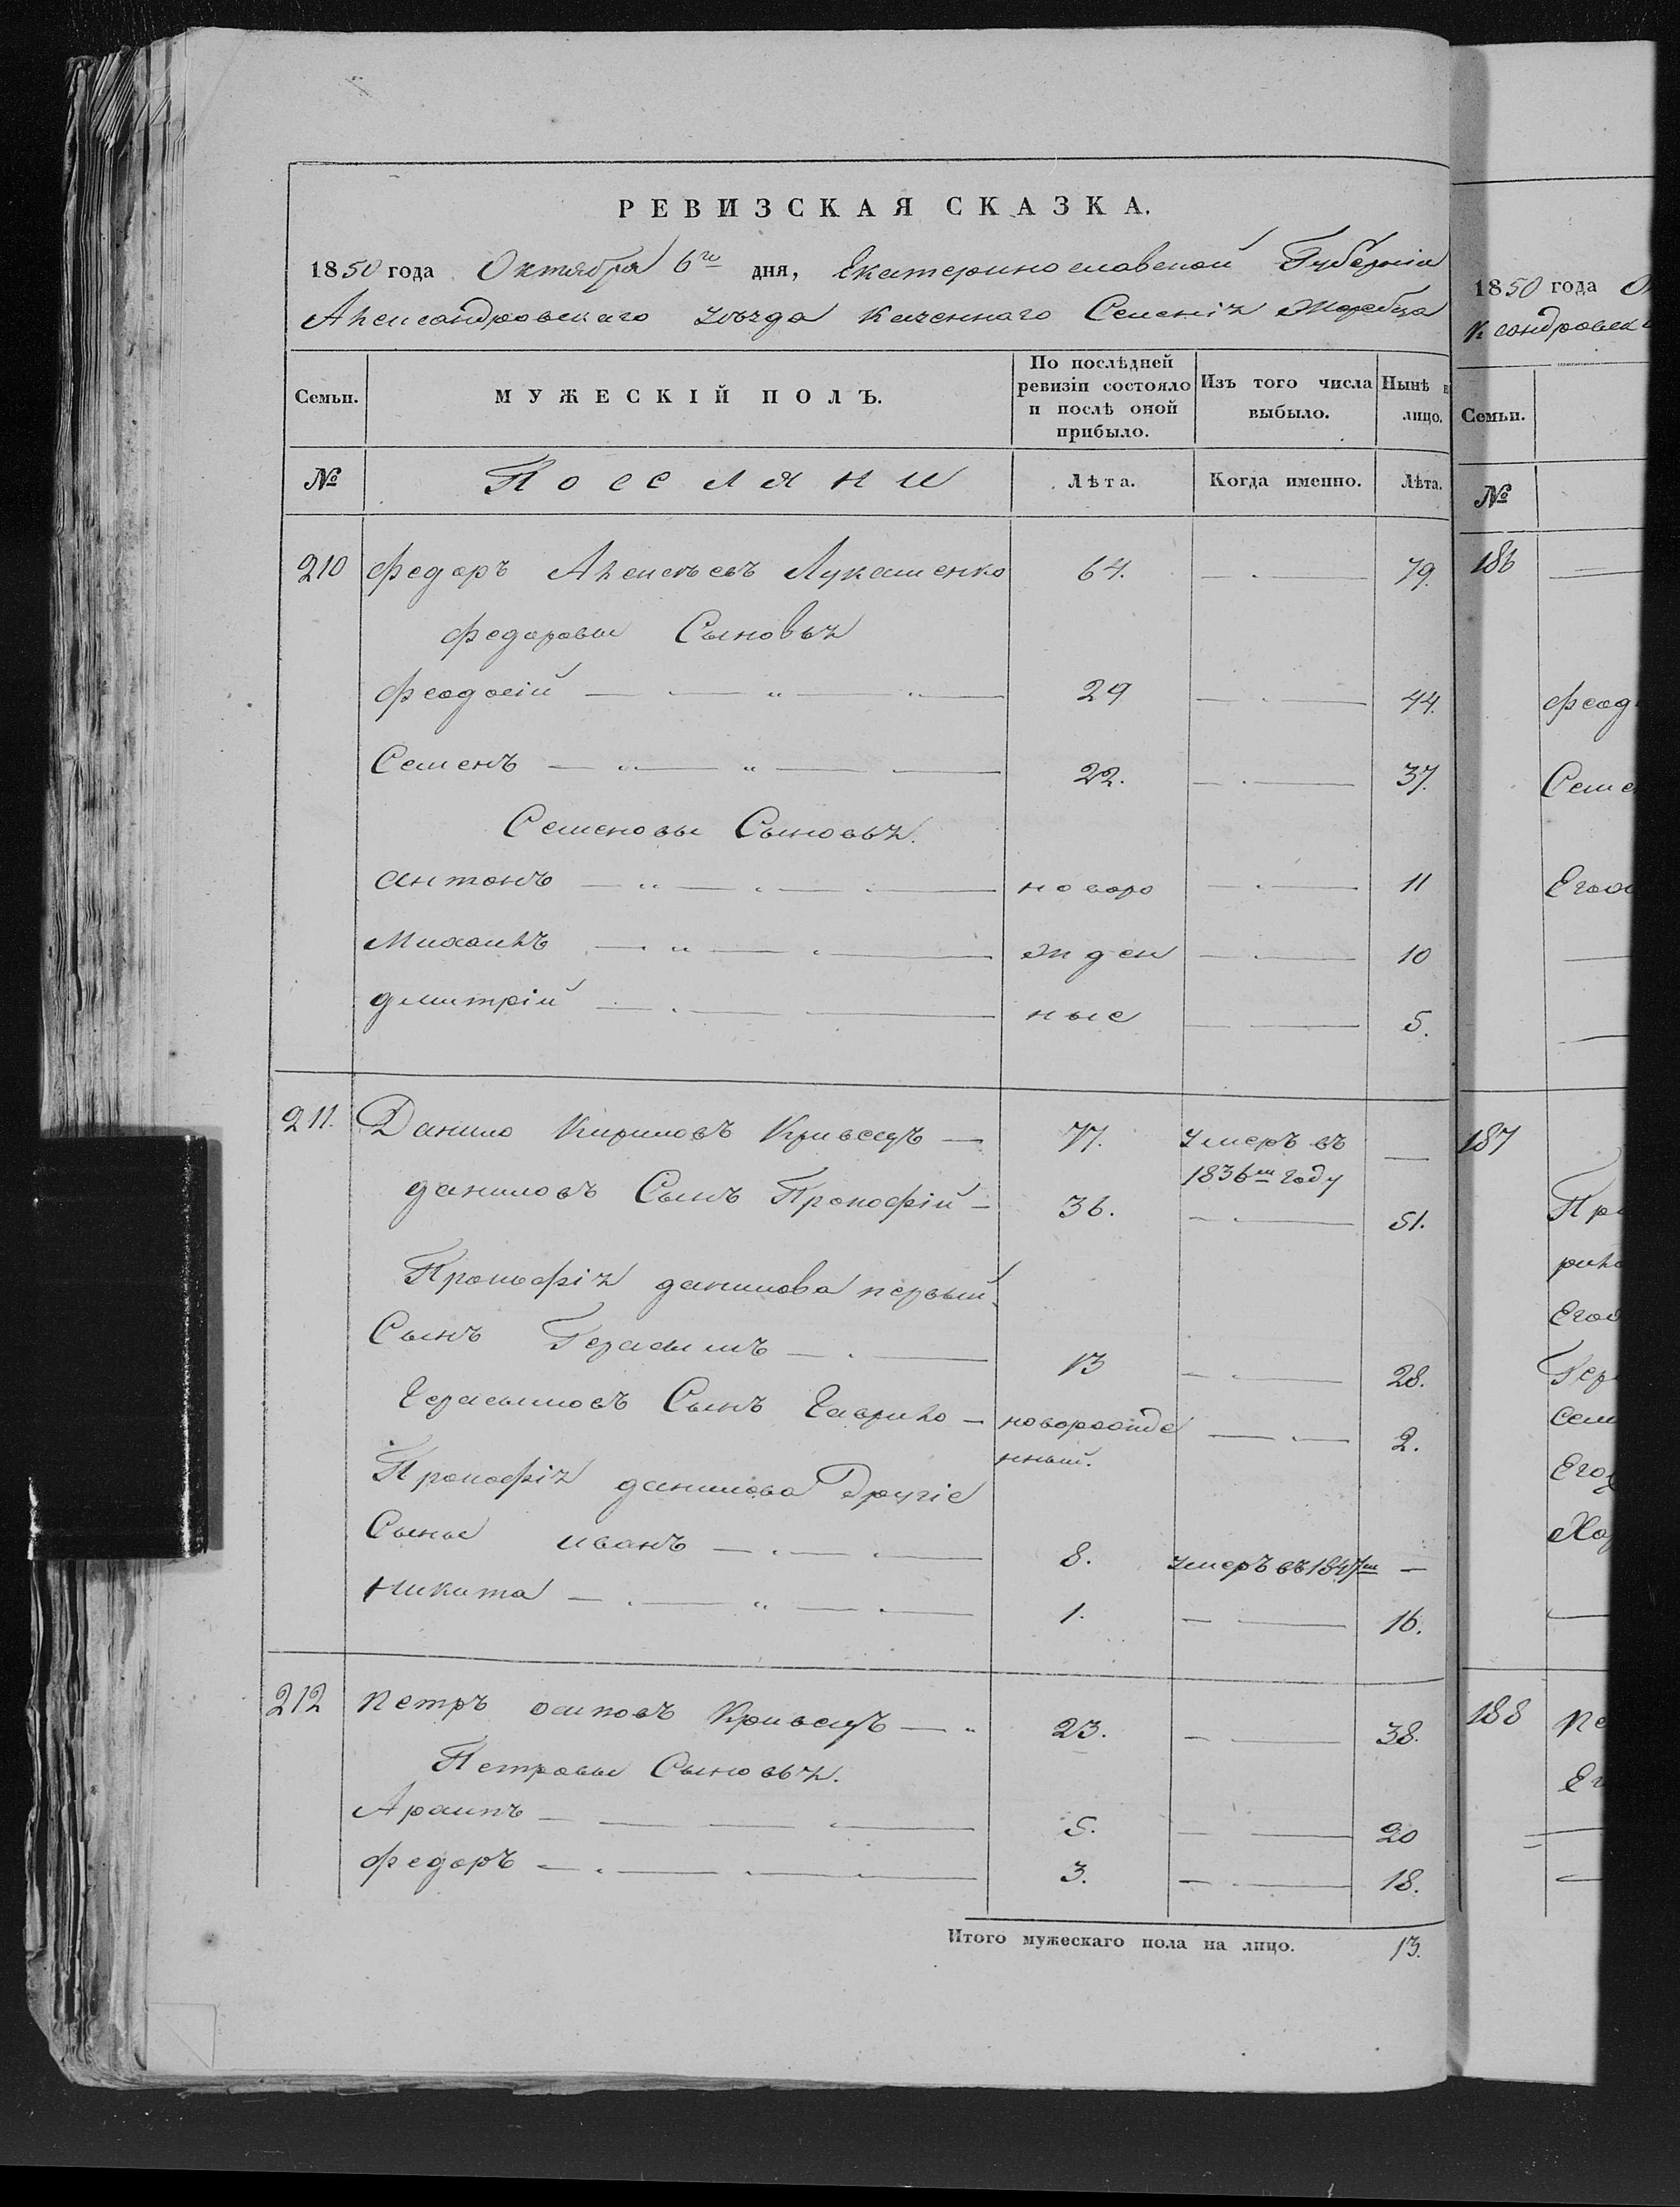 РЕВИЗСКАЯ СКАЗКА.
1850 года Октября 6го дня, Екатеринославской Губерніи
Александровскаго уѣзда казеннаго Селенія Жеребца
Семьи. МУЖЕСКІЙ ПОЛЪ. По послѣдней ревизіи состояло и послѣ оной прибыло. Изъ того числа выбыло. Нынѣ в лицо.
№ Поселяни Лѣта. Когда именно. Лѣта.
210 Федоръ Алексѣевъ Лукашенко 64. 79.
Федоровы Сыновья
Феодосій 29 44.
Семенъ 22. 37.
Семеновы Сыновья.
Антонъ новоро 11
Михаилъ жден 10
Дмитрій ные 5.
211. Данило Кириловъ Кривецъ 77. Умеръ въ
1836м году
Даниловъ Сынъ Прокофій 36. 51.
Прокофія Данилова первый
Сынъ Герасимъ 13 28.
Герасимовъ Сынъ Гаврило новорожде
нный. 2.
Прокофія Данилова Другіе
Сыны Иванъ 8. Умеръ въ 1847м
Никита 1. 16.
212 Петръ Осиповъ Кривецъ 23. 38.
Петровы Сыновья.
Архипъ 5. 20
Федоръ 3. 18.
Итого мужескаго пола на лицо. 13.
1850 года
Семьи.
№
186
Феод
Семе
187
188